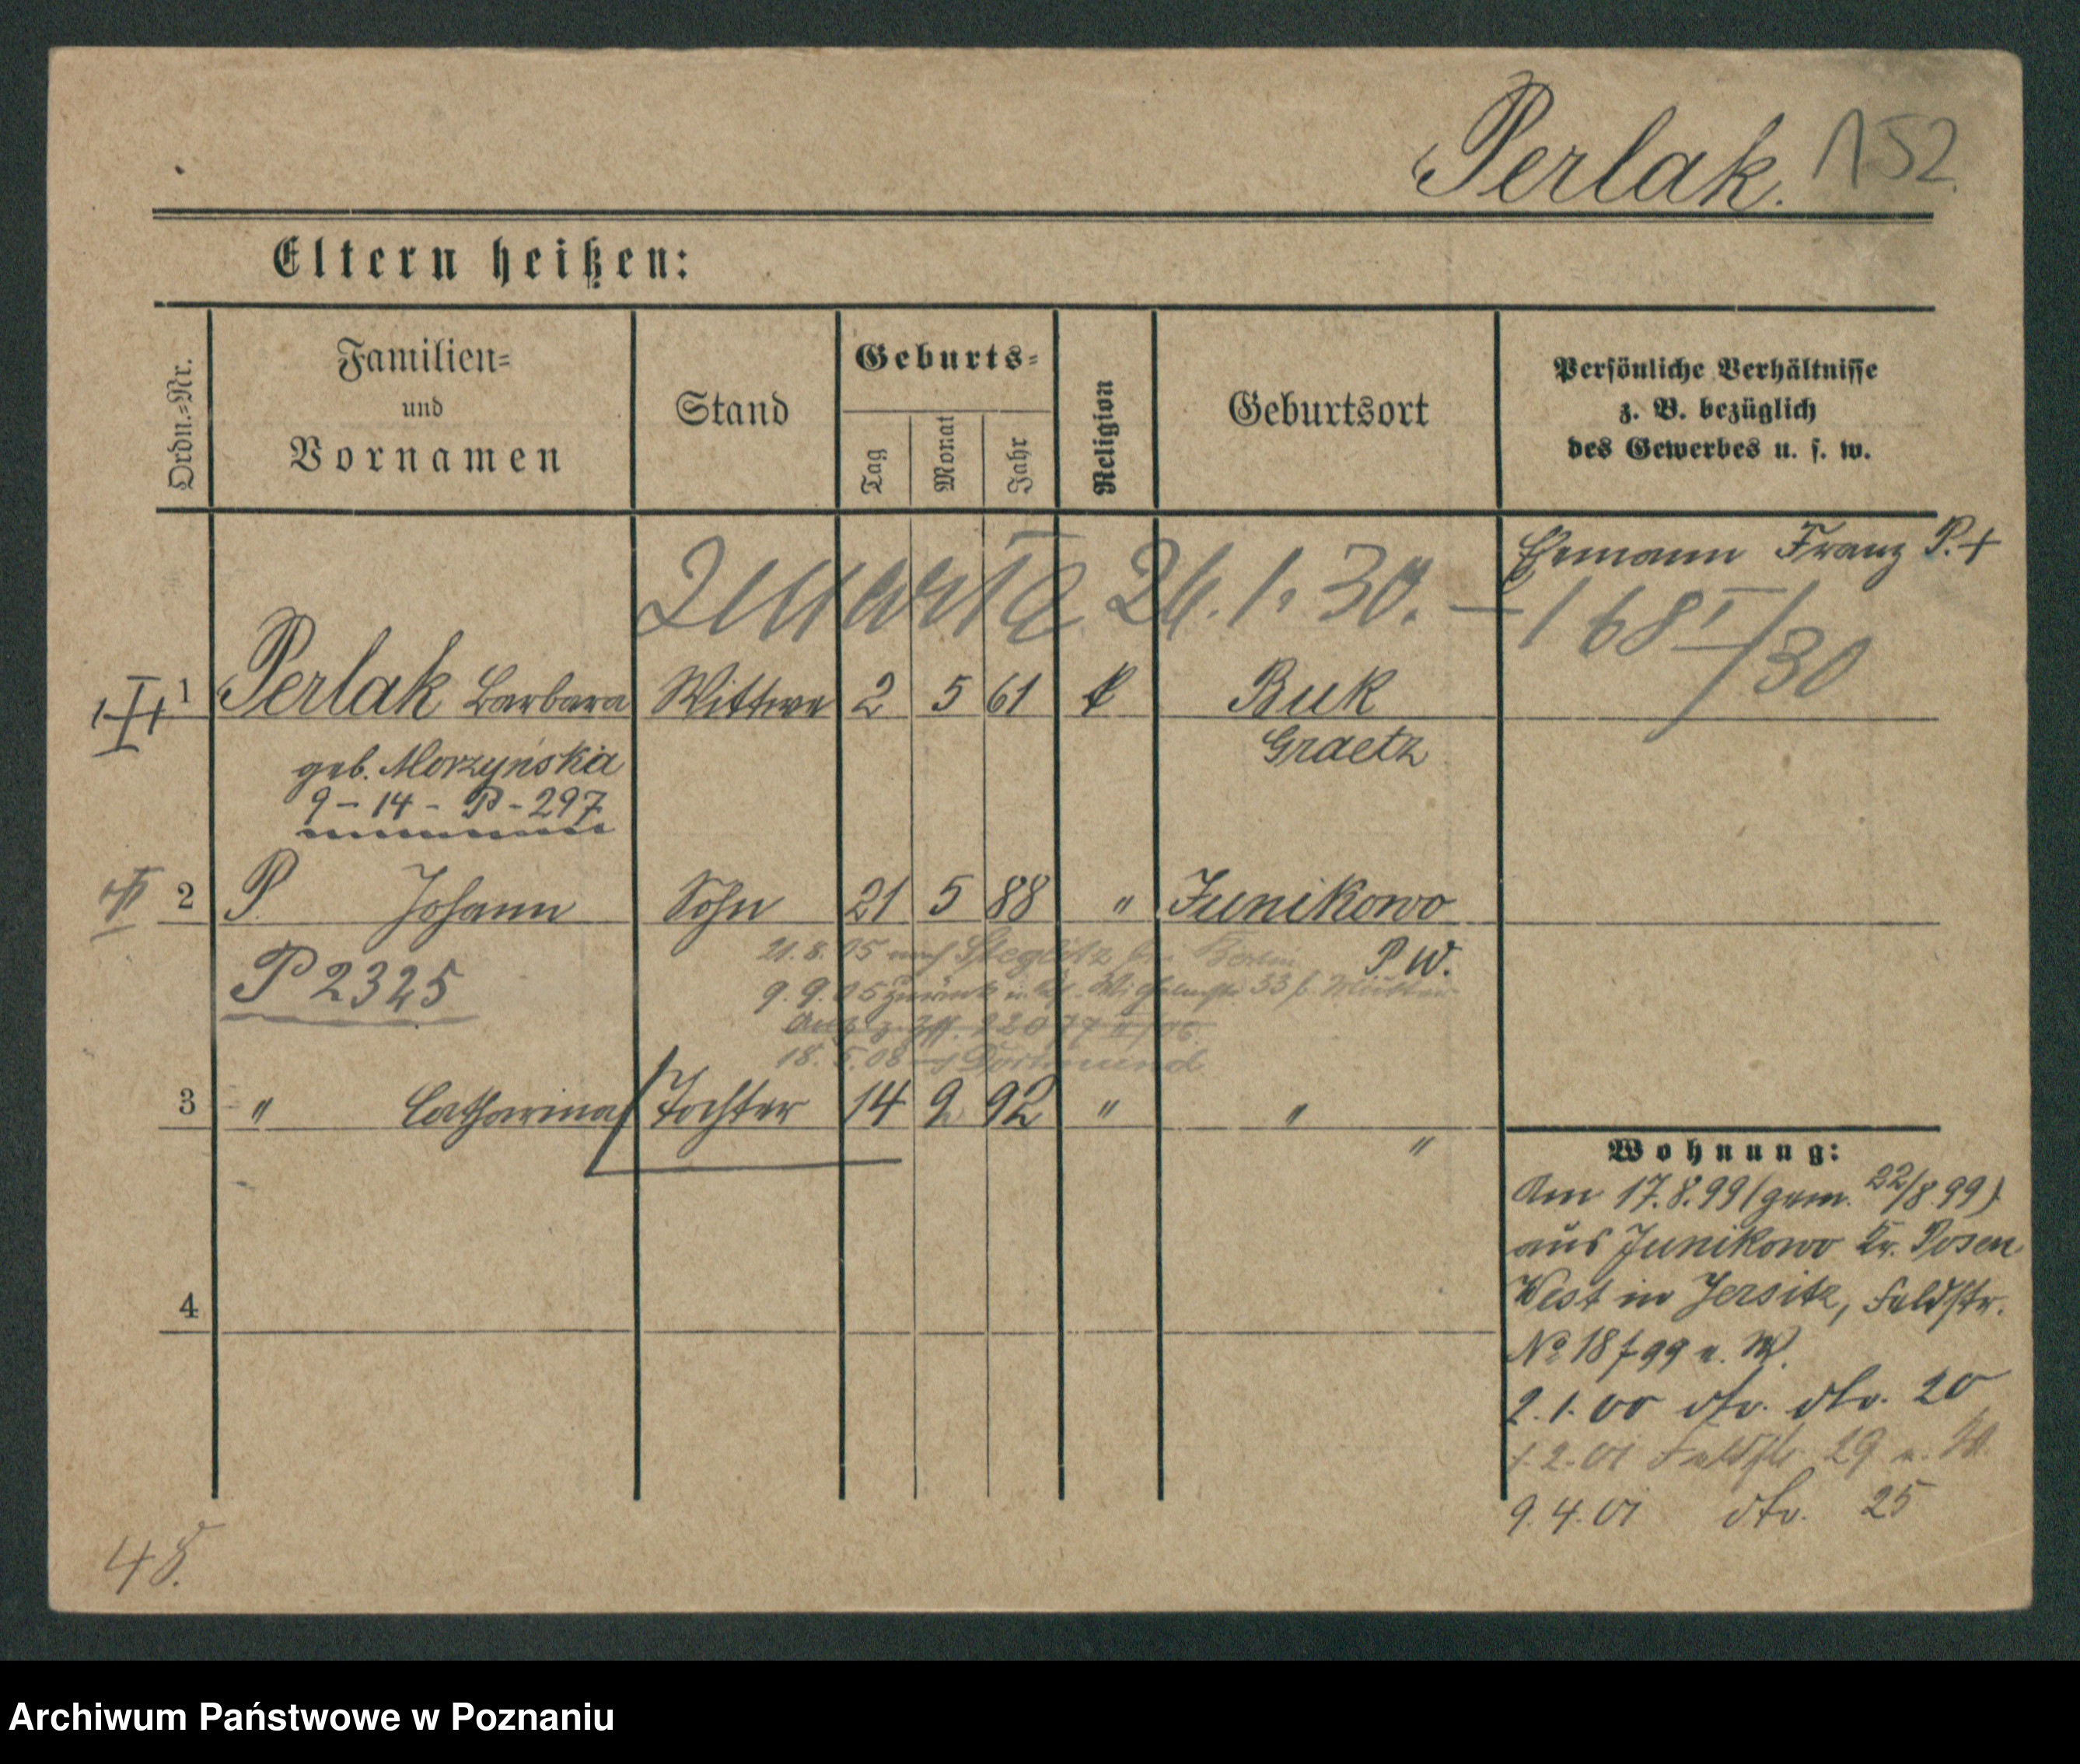 Perlak. 152
Eltern heißen:
Ordn.=Nr.
Familien=
und
Vornamen
Stand
Geburts=
Tag
Monat
Jahr
Religion
Geburtsort
Persönliche Verhältnisse
z. B. bezüglich
des Gewerbes u. s. w.
Ehemann Franz P. +
zmarła 26.1.30. — 168 I/30
1 Perlak Barbara Wittwe 2 5 61 k Buk
geb. Morzyńska Graetz
9 - 14 - P - 297
2 P. Johann Sohn 21 5 88 " Junikowo
21.8.05 nach Steglitz bei Berlin P W.
P 2325
9.9.05 zurück Wilhelmstr 33 b. Mutter
18.5.08 Dortmund
3 " Catharina Tochter 14 9 92 " " "
Wohnung:
Am 17.8.99 (gem. 22/8 99)
aus Junikowo Kr. Posen
West in Jersitz, Feldstr.
4
No 18 f 99 u. W.
2.1.00 dto. dto. 20
1.2.01 Feldstr. 29 u. W.
9.4.01 dto. 25
Archiwum Państwowe w Poznaniu